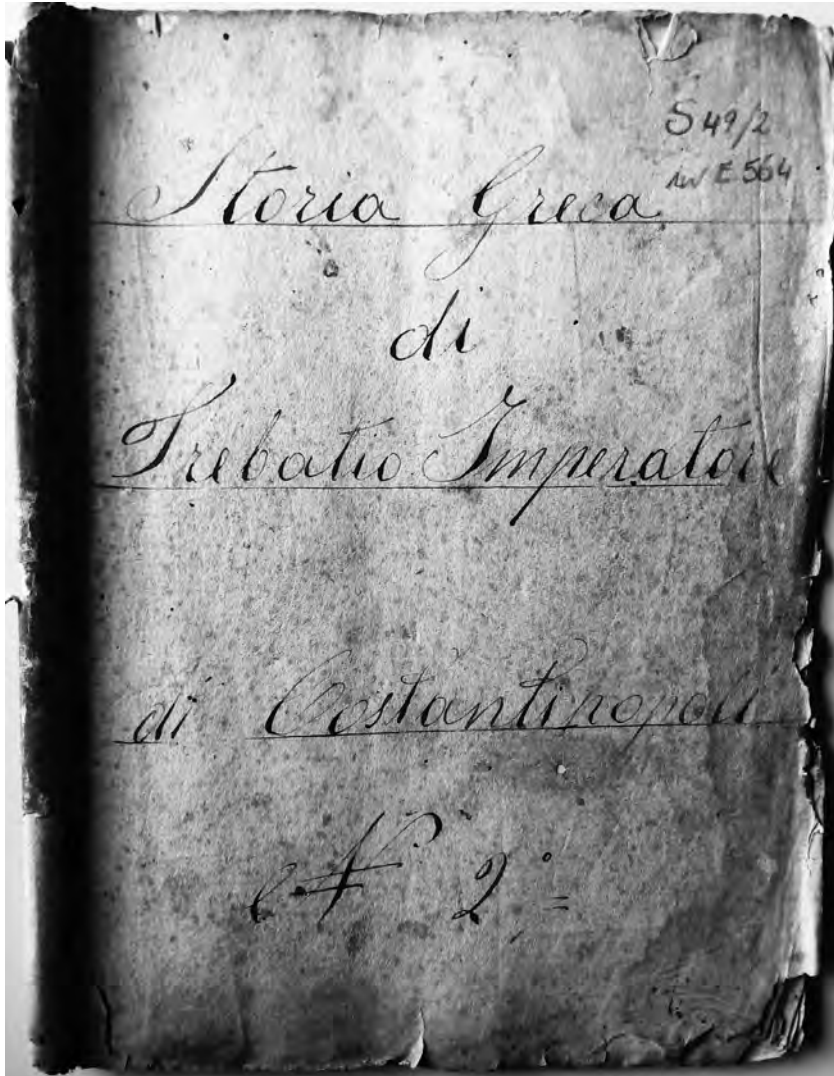 S 49/2
inv E 564
Storia Greca
di
Trebatio Imperatore
di Costantinopoli
N 2°=